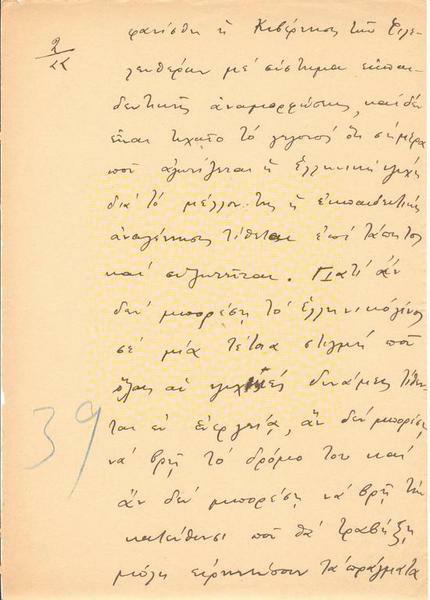 2
φανίσθη ἡ Κυβέρνησις τῶν Φιλε-
λευθέρων μέ σύστημα ἐκπαι-
δευτικῆς ἀναμορφώσεως, καί δέν
εἶναι τυχαῖο τό γεγονός ὅτι σήμερα
πού ἀγωνίζεται ἡ Ἑλληνική ψυχή
διά τό μέλλον της ἡ ἐκπαιδευτική
ἀναγέννησις τίθεται ἐπί τάπητος
καί συζητεῖται. Γιατί ἄν
δέν μπορέση τό Ἑλληνικό γένος
σέ μιά τέτοια στιγμή πού
ὅλαι αἱ ψυχικές δυνάμεις τίθεν-
ται ἐν ἐνεργεία, ἄν δέν μπορέση
νά βρῆ τό δρόμο του καί
39
ἄν δέν μπορέση νά βρῆ τήν
κατεύθυνσι πού θά τραβήξη
μόλις εἰρηνεύσουν τά πράγματα